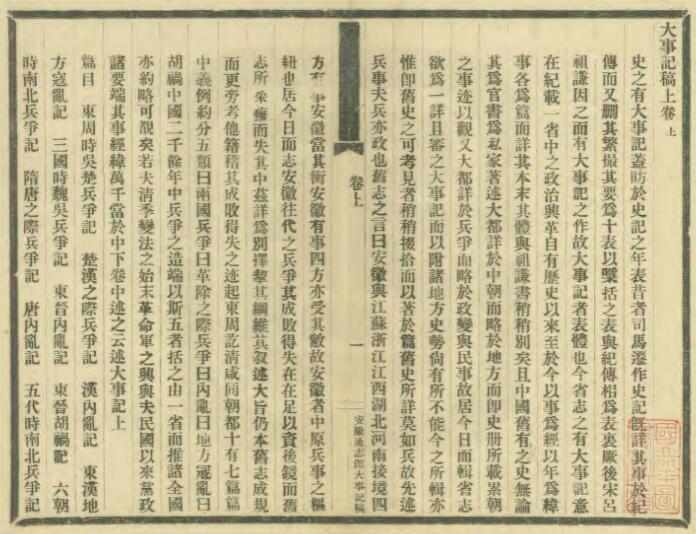 大事記稿上卷 上
史之有大事記蓋昉於史記之年表昔者司馬遷作史記旣詳其事於紀
傳而又删其繁撮其要爲十表以檃括之表與紀傳相爲表裏厥後宋呂
祖謙因之而有大事記之作故大事記者表體也今省志之有大事記意
在紀載一省中之政治興革自有歷史以來至於今以事爲經以年爲緯
事各爲篇而詳其本末其體與祖謙書稍稍別矣且中國舊有之史無論
其爲官書爲私家著述大都詳於中朝而略於地方面即史册所載累朝
之事迹以觀又大都詳於兵爭而略於政變與民事故居今日而輯省志
欲爲一詳且審之大事記而以附諸地方史勢尙有所不能今之所輯亦
惟卽舊史之可考見者稍稍掇拾而以著於篇舊史所詳莫如兵故先述
兵事夫兵亦政也舊志之言曰安徽與江蘇浙江江西湖北河南接境四
卷上
一
安徽通志館大事記稿
方有事安徽當其衝安徽有事四方亦受其敝故安徽者中原兵事之樞
紐也居今日而志安徽往代之兵爭其成敗得失在在足以資後鏡而舊
志所采癰而失其中茲詳爲別擇挈其綱維其敍述大旨仍本舊志成規
而更旁考他籍稽其成敗得失之迹起東周訖淸咸同朝都十有七篇篇
中義例約分五類曰兩國兵爭曰革除之際兵爭曰內亂曰地方寇亂曰
胡禍中國二千餘年中兵爭之造端以斯五者括之由一省而推諸全國
亦約略可覩矣若夫淸季變法之始末革命軍之興與夫民國以來黨政
諸要端其事經緯萬千當於中下卷中述之云述大事記上
篇目 東周時吳楚兵爭記 楚漢之際兵爭記 漢內亂記 東漢地
方寇亂記 三國時魏吳兵爭記 東晉內亂記 東晉胡禍記 六朝
時南北兵爭記 隋唐之際兵爭記 唐內亂記 五代時南北兵爭記